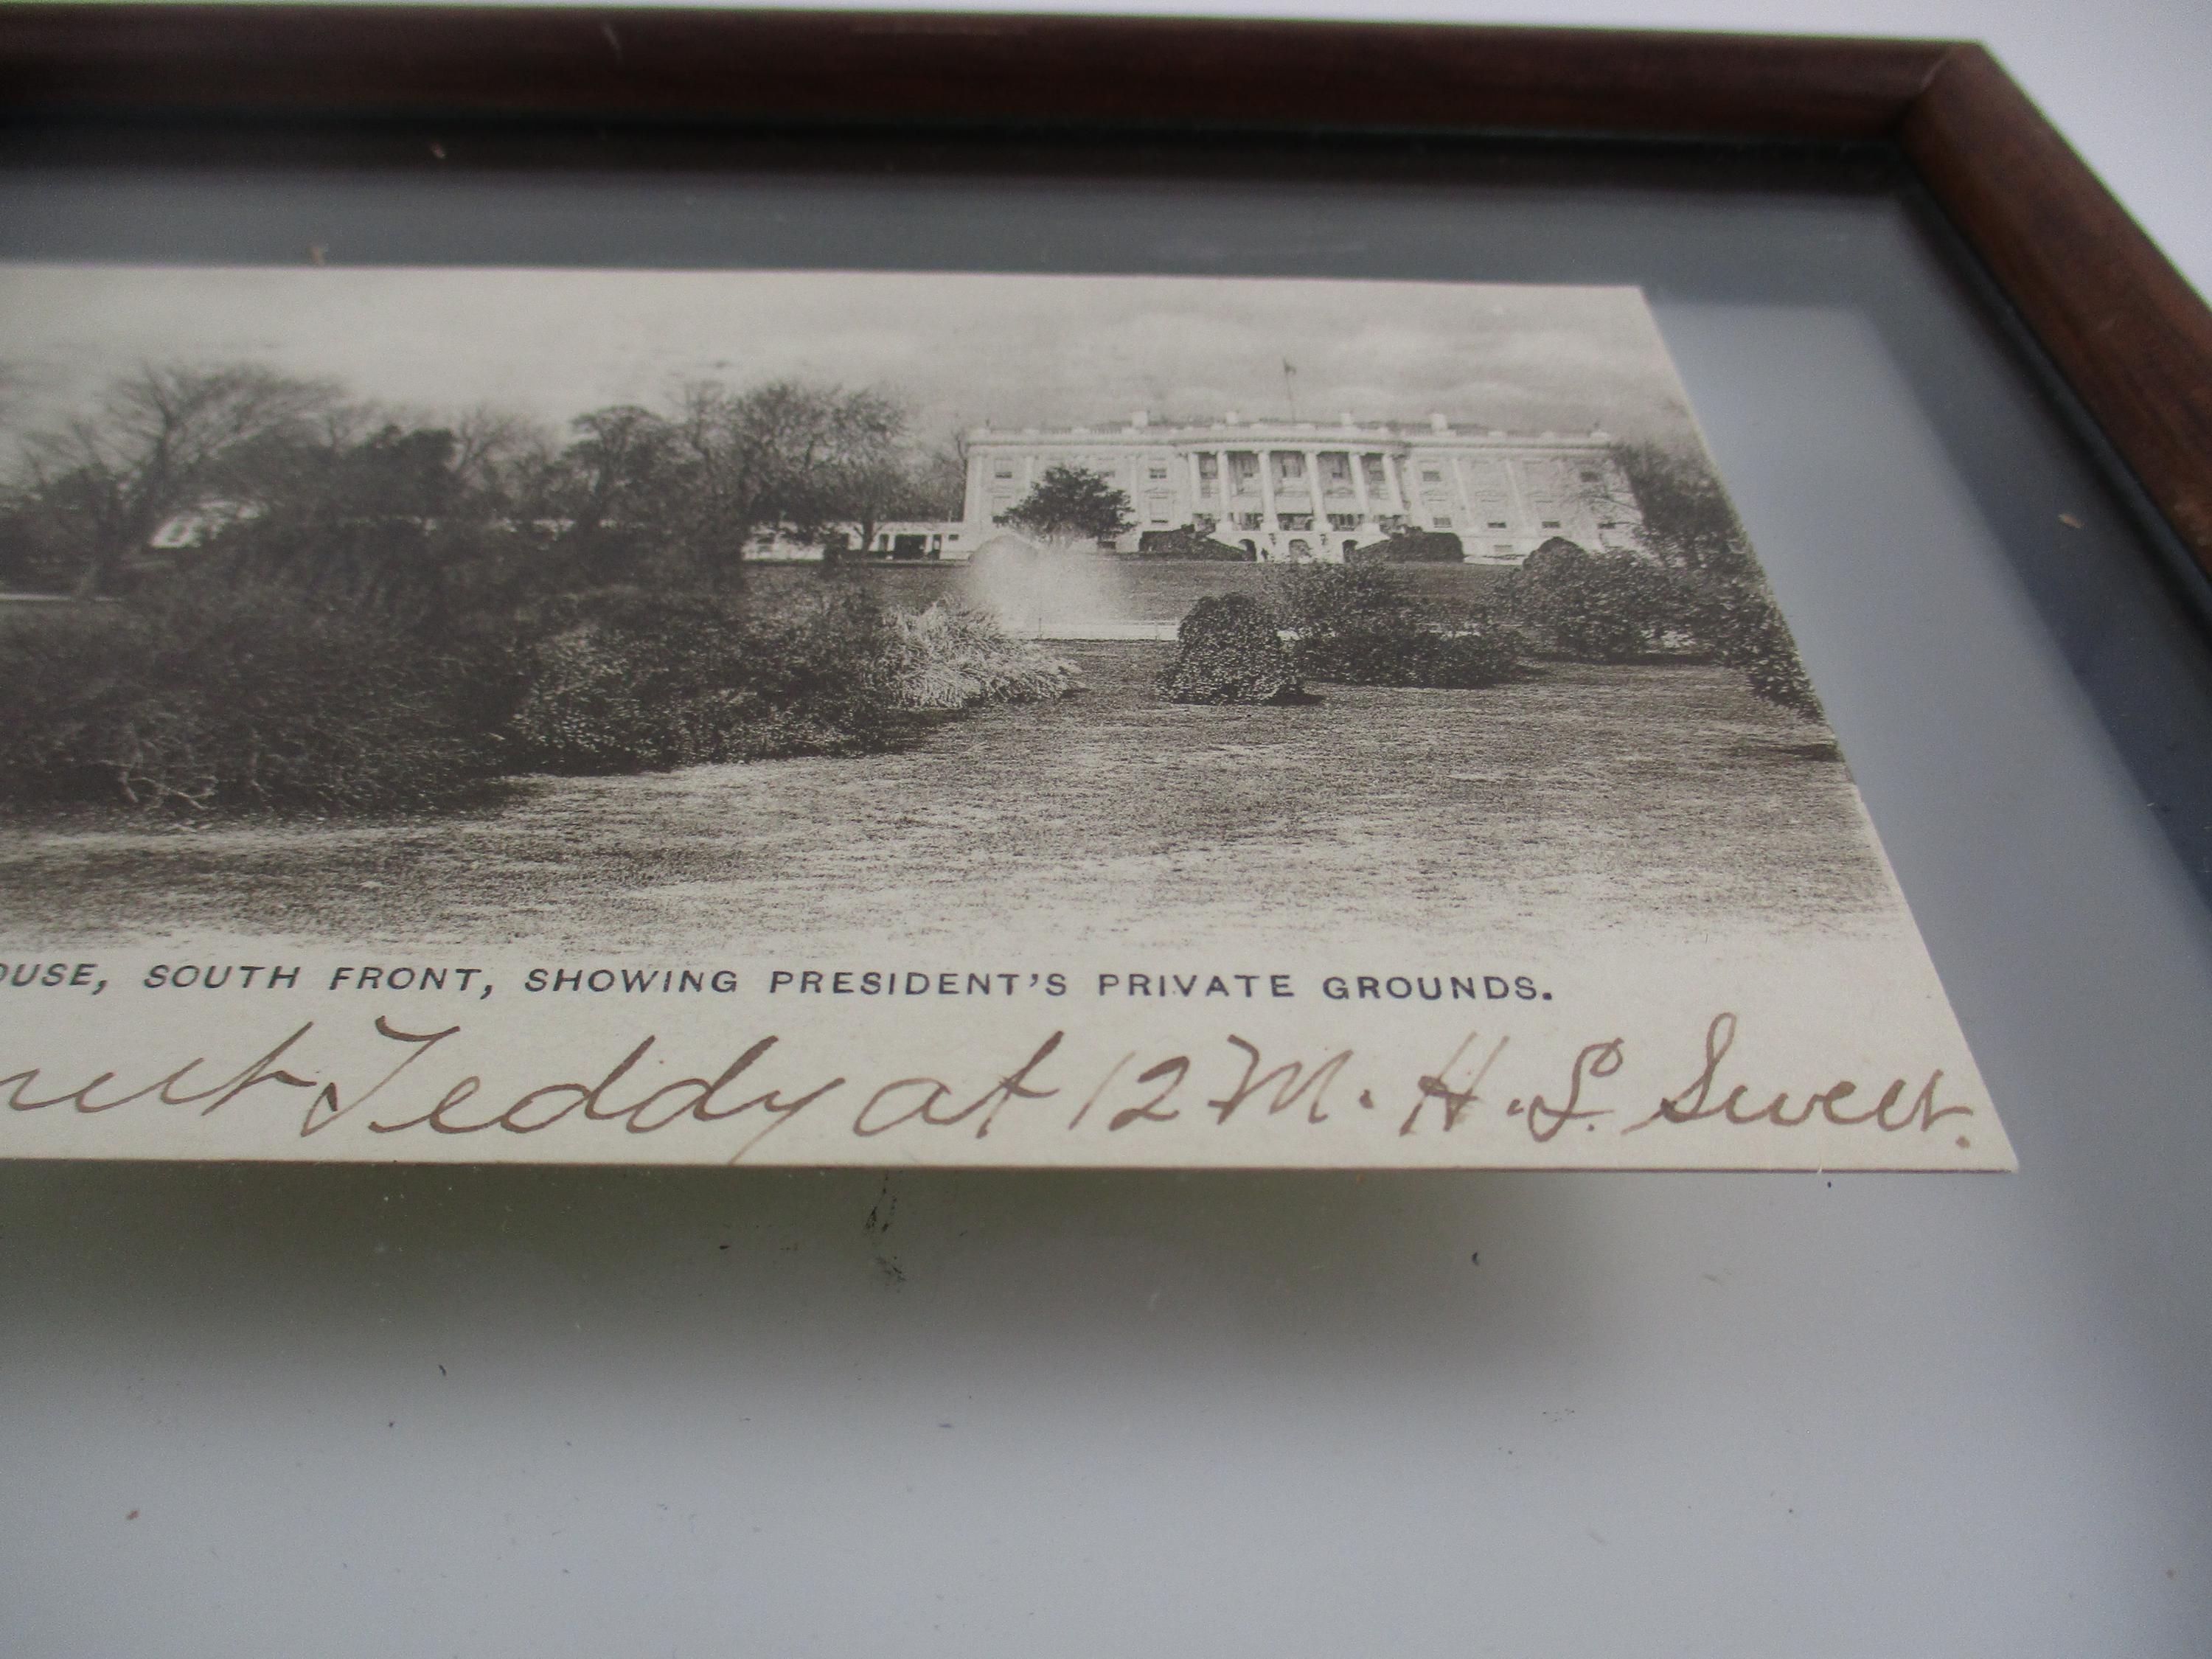 OUSE, SOUTH FRONT, SHOWING PRESIDENT'S PRIVATE GROUNDS.
Teddy at 12 M. H. L. Sweet.